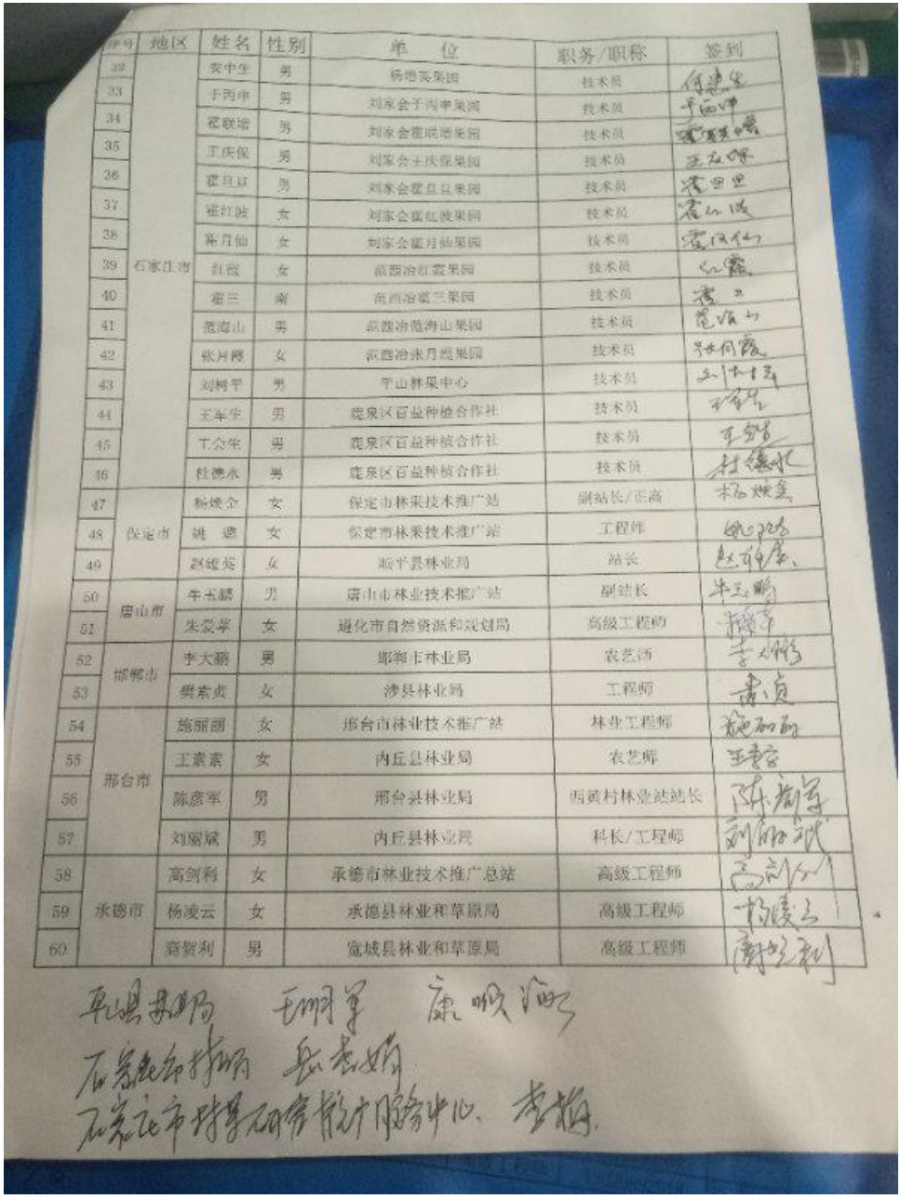 序号 地区 姓名 性别 单位 职务/职称 签到
32 安中生 男 杨增英果园 技术员
33 于丙申 男 刘家会于丙申果园 技术员 于丙申
34 霍联增 男 刘家会霍联增果园 技术员
35 王庆保 男 刘家会王庆保果园 技术员 王庆保
36 霍旦旦 男 刘家会霍旦旦果园 技术员 霍旦旦
37 霍红波 女 刘家会霍红波果园 技术员 霍红波
38 霍月仙 女 刘家会霍月仙果园 技术员 霍月仙
39 石家庄市 红霞 女 范西冶红霞果园 技术员 红霞
40 霍三 南 范西冶霍三果园 技术员 霍三
41 范海山 男 范西冶范海山果园 技术员 范海山
42 张月霞 女 范西冶张月霞果园 技术员 张月霞
43 刘树平 男 平山林果中心 技术员
44 王军生 男 鹿泉区百益种植合作社 技术员
45 王会生 男 鹿泉区百益种植合作社 技术员
46 杜德永 男 鹿泉区百益种植合作社 技术员
47 杨焕金 女 保定市林果技术推广站 副站长/正高 杨焕金
48 保定市 姚璐 女 保定市林果技术推广站 工程师 姚璐
49 赵雄英 女 顺平县林业局 站长
50 牛玉鹏 男 唐山市林业技术推广站 副站长
51 唐山市 朱爱苹 女 遵化市自然资源和规划局 高级工程师
52 李大鹏 男 邯郸市林业局 农艺师 李大鹏
53 邯郸市 樊素贞 女 涉县林业局 工程师 素贞
54 施丽丽 女 邢台市林业技术推广站 林业工程师 施丽丽
55 王素素 女 内丘县林业局 农艺师
56 邢台市 陈彦军 男 邢台县林业局 西黄村林业站站长 陈彦军
57 刘丽斌 男 内丘县林业局 科长/工程师 刘丽斌
58 高剑利 女 承德市林业技术推广总站 高级工程师 高剑利
59 承德市 杨凌云 女 承德县林业和草原局 高级工程师 杨凌云
60 商贺利 男 宽城县林业和草原局 高级工程师 商贺利
平山县林业局 王明军 康顺海
石家庄市
石家庄市 服务中心、 李梅